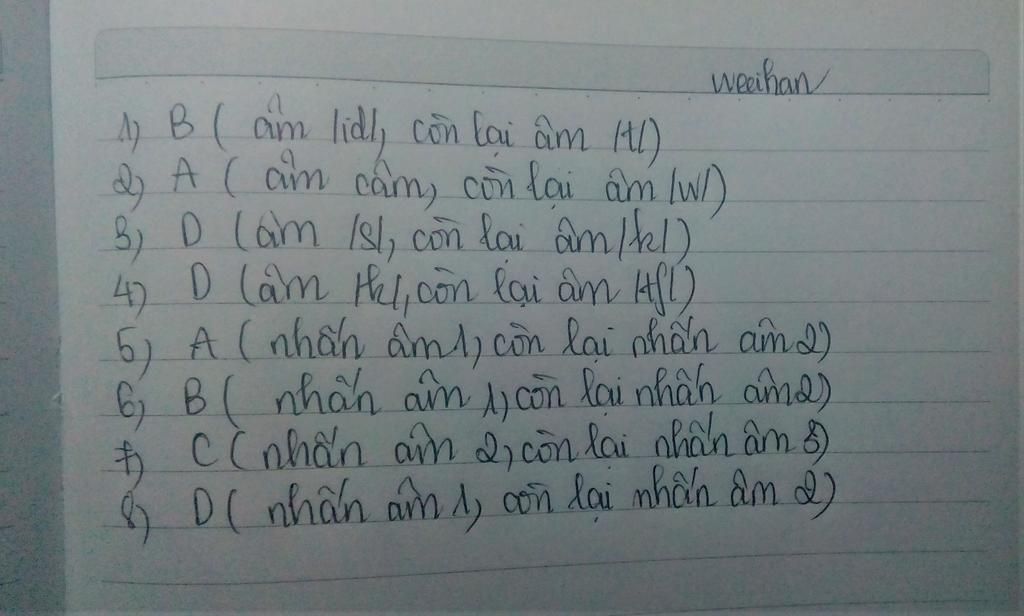 weeihan
1) B ( âm /id/, còn lại âm /t/)
2) A ( âm câm, còn lại âm /w/)
3) D (âm /s/, còn lại âm /k/)
4) D (âm /k/, còn lại âm /tʃ/)
5) A ( nhấn âm 1, còn lại nhấn âm 2)
6) B ( nhấn âm 1, còn lại nhấn âm 2)
7) C ( nhấn âm 2, còn lại nhấn âm 3)
8) D ( nhấn âm 1, còn lại nhấn âm 2)